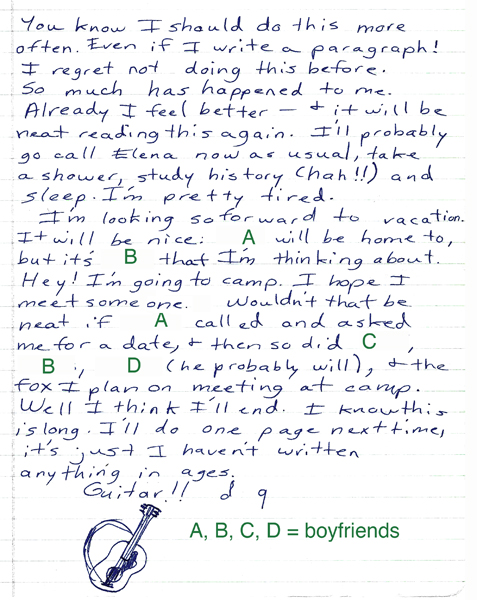 You know I should do this more
often. Even if I write a paragraph!
I regret not doing this before.
So much has happened to me.
Already I feel better — & it will be
neat reading this again. I'll probably
go call Elena now as usual, take
a shower, study history (hah!!) and
sleep. I'm pretty tired.
I'm looking so forward to vacation.
It will be nice: A will be home to,
but it's B that I'm thinking about.
Hey! I'm going to camp. I hope I
meet someone. Wouldn't that be
neat if A called and asked
me for a date, & then so did C ,
B , D (he probably will), & the
fox I plan on meeting at camp.
Well I think I'll end. I know this
is long. I'll do one page next time,
it's just I haven't written
anything in ages.
Guitar!!
A, B, C, D = boyfriends